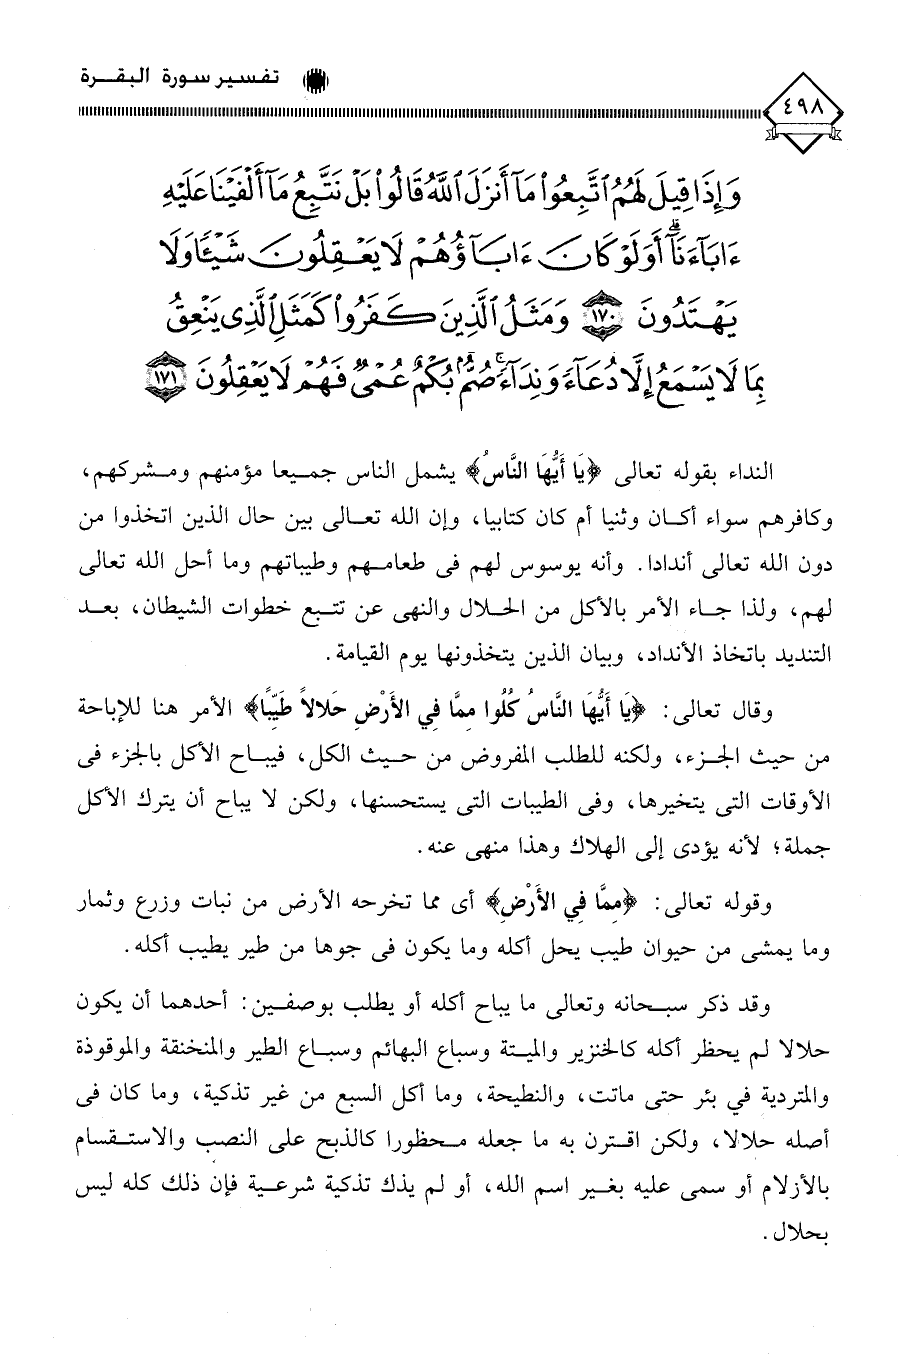 تفسير سورة البقرة
٤٩٨
وَإِذَا قِيلَ لَهُمُ ٱتَّبِعُوا۟ مَآ أَنزَلَ ٱللَّهُ قَالُوا۟ بَلْ نَتَّبِعُ مَآ أَلْفَيْنَا عَلَيْهِ
ءَابَآءَنَآ ۗ أَوَلَوْ كَانَ ءَابَآؤُهُمْ لَا يَعْقِلُونَ شَيْـًٔا وَلَا
يَهْتَدُونَ ١٧٠ وَمَثَلُ ٱلَّذِينَ كَفَرُوا۟ كَمَثَلِ ٱلَّذِى يَنْعِقُ
بِمَا لَا يَسْمَعُ إِلَّا دُعَآءً وَنِدَآءً ۚ صُمٌّۢ بُكْمٌ عُمْىٌ فَهُمْ لَا يَعْقِلُونَ ١٧١
النداء بقوله تعالى ﴿يَا أَيُّهَا النَّاسُ﴾ يشمل الناس جميعا مؤمنهم ومشركهم،
وكافرهم سواء أكان وثنيا أم كان كتابيا، وإن الله تعالى بين حال الذين اتخذوا من
دون الله تعالى أندادا. وأنه يوسوس لهم فى طعامهم وطيباتهم وما أحل الله تعالى
لهم، ولذا جاء الأمر بالأكل من الحلال والنهى عن تتبع خطوات الشيطان، بعد
التنديد باتخاذ الأنداد، وبيان الذين يتخذونها يوم القيامة.
وقال تعالى: ﴿يَا أَيُّهَا النَّاسُ كُلُوا مِمَّا فِي الأَرْضِ حَلالاً طَيِّبًا﴾ الأمر هنا للإباحة
من حيث الجزء، ولكنه للطلب المفروض من حيث الكل، فيباح الأكل بالجزء فى
الأوقات التى يتخيرها، وفى الطيبات التى يستحسنها، ولكن لا يباح أن يترك الأكل
جملة؛ لأنه يؤدى إلى الهلاك وهذا منهى عنه.
وقوله تعالى: ﴿مِمَّا فِي الأَرْضِ﴾ أى مما تخرحه الأرض من نبات وزرع وثمار
وما يمشى من حيوان طيب يحل أكله وما يكون فى جوها من طير يطيب أكله.
وقد ذكر سبحانه وتعالى ما يباح أكله أو يطلب بوصفين: أحدهما أن يكون
حلالا لم يحظر أكله كالخنزير والميتة وسباع البهائم وسباع الطير والمنخنقة والموقوذة
والمتردية في بئر حتى ماتت، والنطيحة، وما أكل السبع من غير تذكية، وما كان فى
أصله حلالا، ولكن اقترن به ما جعله محظورا كالذبح على النصب والاستقسام
بالأزلام أو سمى عليه بغير اسم الله، أو لم يذك تذكية شرعية فإن ذلك كله ليس
بحلال.